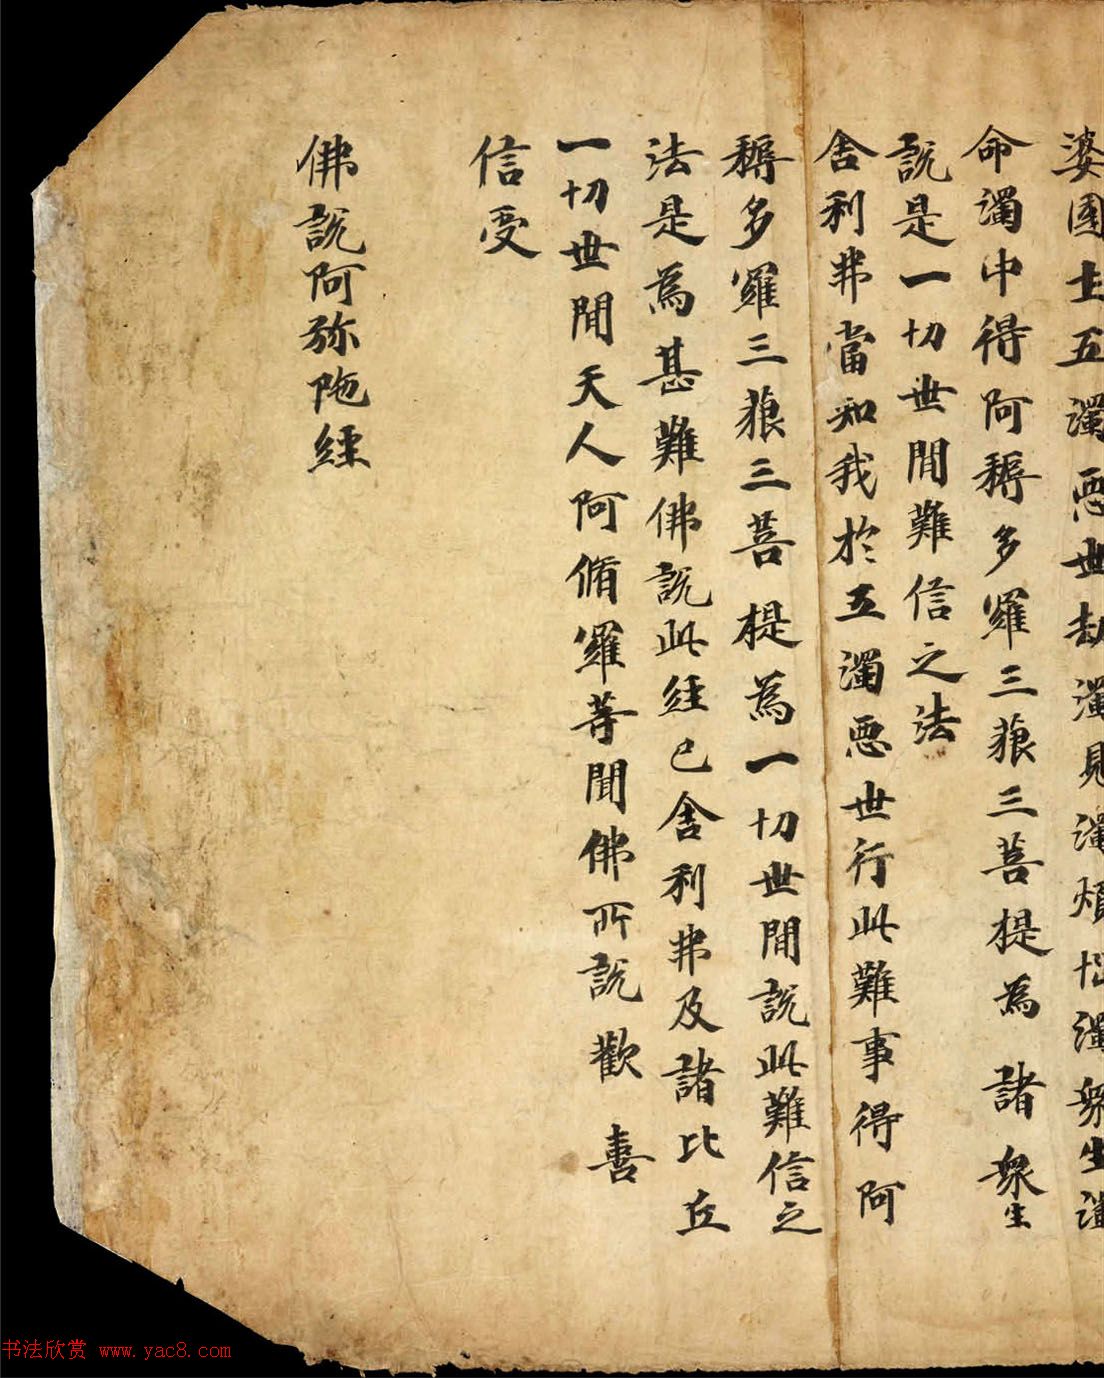 婆國土五濁惡世劫濁見濁煩惱濁衆生濁
命濁中得阿耨多羅三藐三菩提為諸衆生
說是一切世間難信之法
舍利弗當知我於五濁惡世行此難事得阿
耨多羅三藐三菩提為一切世間說此難信之
法是為甚難佛說此經已舍利弗及諸比丘
一切世間天人阿脩羅等聞佛所說歡喜
信受
佛說阿弥陁經
书法欣赏 www.yac8.com